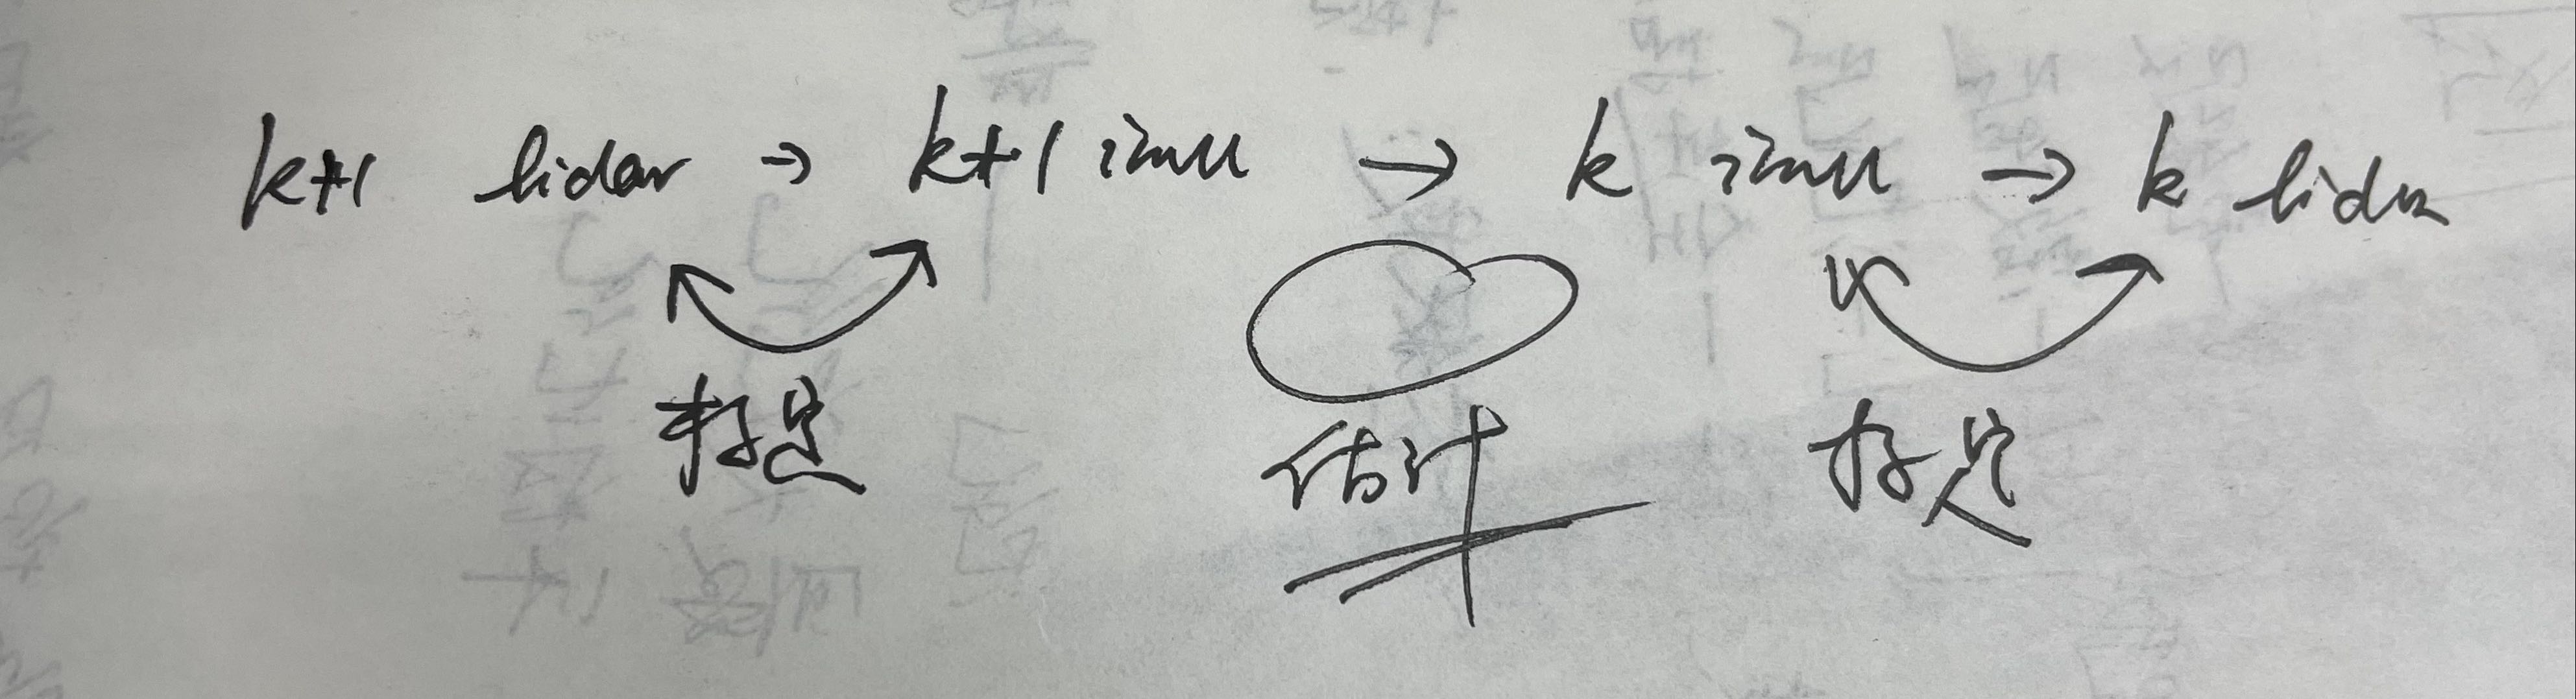 k+1 lidar → k+1 imu → k imu → k lidar
标定 估计 标定